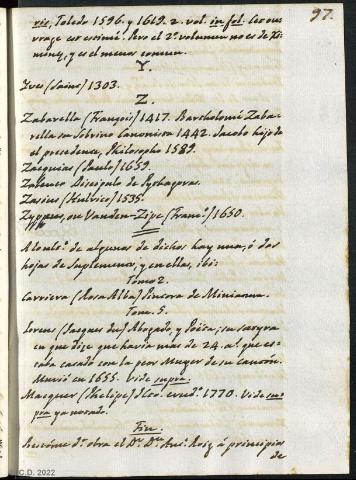 97.
ris, Toledo 1596. y 1619. 2. vol. in fol. Ceт ou-
vrage est estimé. Pero el 2.º volumen no es de Xi-
ménez, y es el menos comun.
Y.
Yves (Saint) 1303.
Z.
Zabarella (François) 1417. Bartholomé Zaba-
rella su Sobrino Canonista 1442. Jacobo hijo de
el precedente, Philosopho 1589.
Zacquias (Paulo) 1659.
Zaleuco Discipulo de Pythagoras.
Zasius (Hulrico) 1535.
Zyppeus, ou Vanden-Zipe (Franc.º) 1650.
Al de algunos de dichos hay una, ó dos
hojas de Suplemento; y en ellas, ibi:
Tomo 2.
Carriera (Rosa Alba) Pintora de Miniatura.
Tom. 5.
Lorens (Jacques du) Abogado, y Poeta; su satyra
en que dize que havia mas de 24. a.s que es-
taba casado con la peor Muger de su Cantón.
Murió en 1655. Vide supra.
Macquer (Phelipe) erud.º 1770. Vide su-
pra ya notado.
Fin.
d.ª obra el D.r D.n Ant.º Roiz á principios
de
C.D. 2022